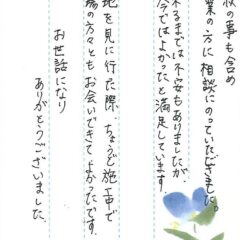 の事も含め
業の方に相談にのっていただきました。
来るまでは不安もありましたが、
今ではよかったと満足しています。
地を見に行た際、ちょうど施工中で
場の方々ともお会いできてよかったです。
お世話になり
ありがとうございました。